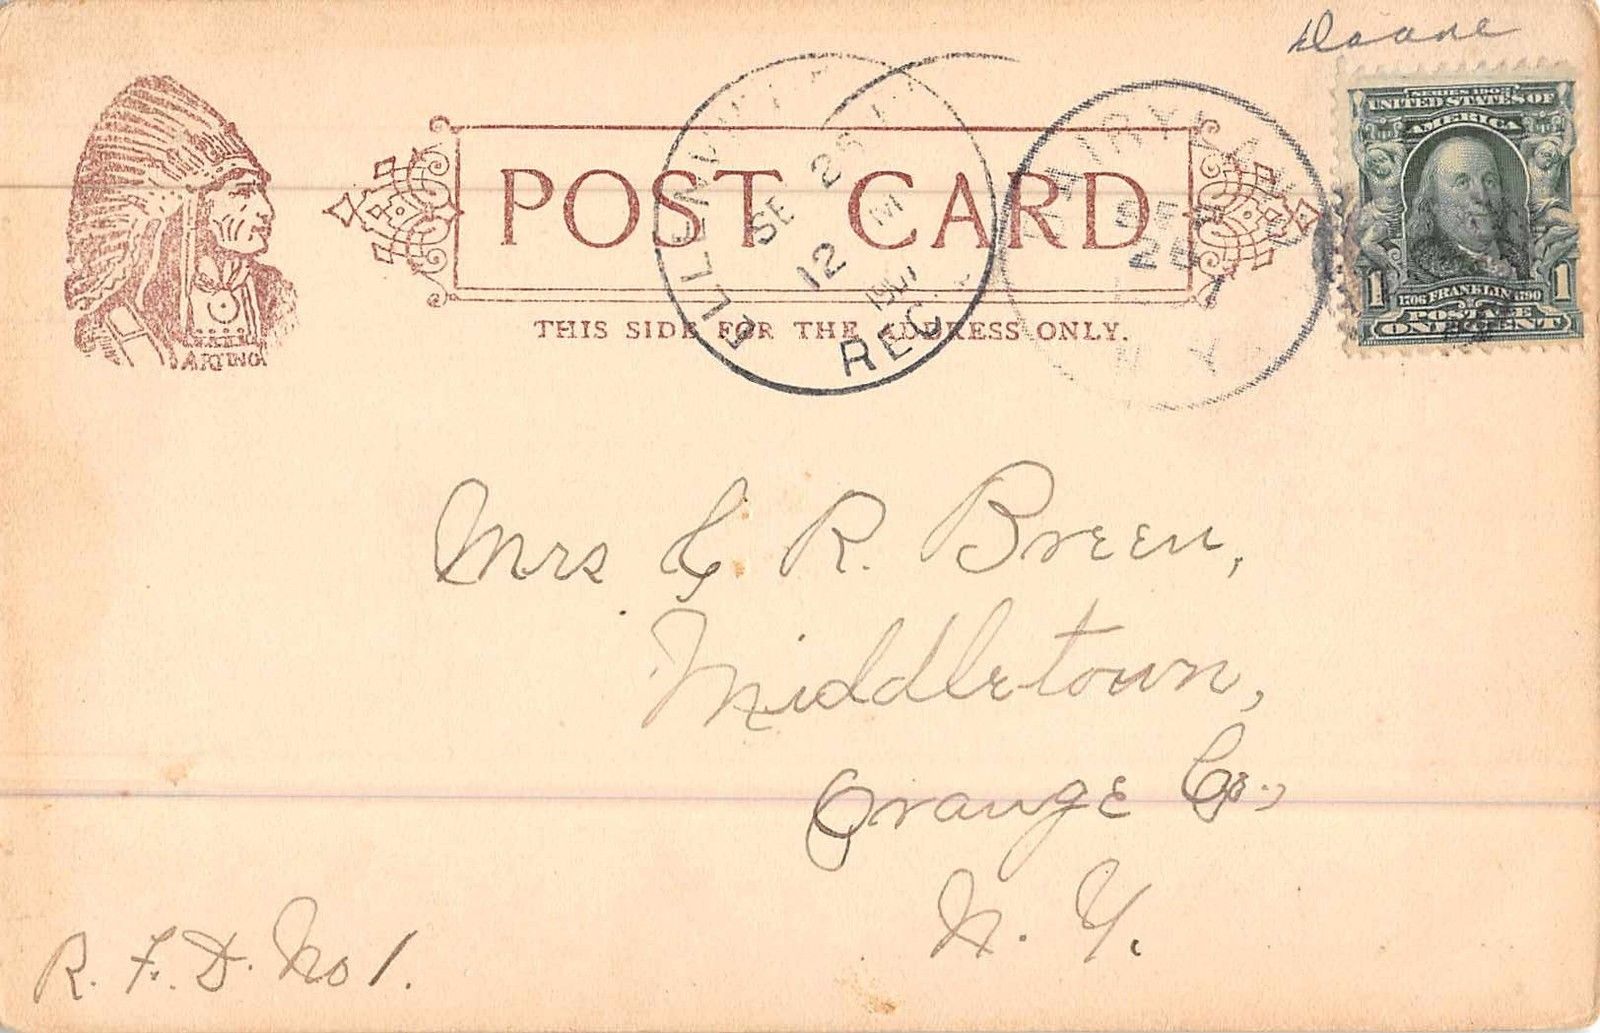 Doane
SERIES 1902
UNITED STATES OF
AMERICA
1 1706 FRANKLIN 1790 1
POSTAGE
ONE CENT
POST CARD
THIS SIDE FOR THE ADDRESS ONLY.
ARTINO
ELLENVILLE
SE 25
12 M
1907
REC'
DAIRYLAND
SEP
N Y
Mrs C R. Breen,
Middletown,
Orange Co.,
N. Y.
R. F. D. No 1.